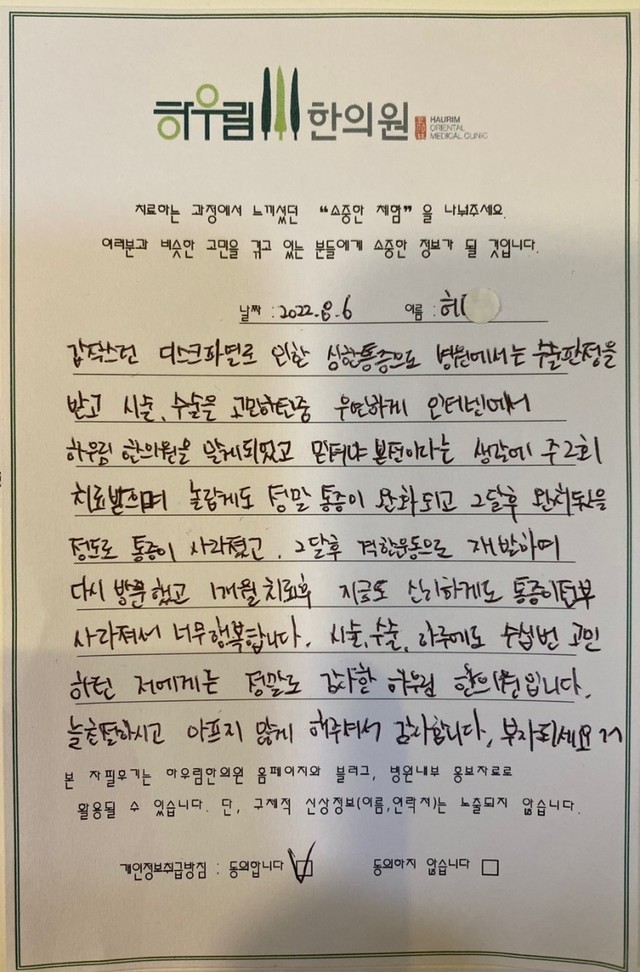 하우림 한의원 HAURIM
ORIENTAL
MEDICAL CLINIC
치료하는 과정에서 느끼셨던 "소중한 체험"을 나눠주세요.
여러분과 비슷한 고민을 겪고 있는 분들에게 소중한 정보가 될 것입니다.
날짜 : 2022.8.6 이름 : 허
갑작스런 디스크파열로 인한 심한통증으로 병원에서는 수술판정을
받고 시술, 수술을 고민하던중 우연하게 인터넷에서
하우림 한의원을 알게되었고 믿져야 본전이다는 생각에 주2회
치료받으며 놀랍게도 정말 통증이 완화되고 2달후 완치됬을
정도로 통증이 사라졌고, 2달후 격한운동으로 재발하여
다시 방문했고 1개월 치료후 지금도 신기하게도 통증이전부
사라져서 너무행복합니다. 시술,수술, 하루에도 수십번 고민
하던 저에게는 정말로 감사한 하우림 한의원입니다.
늘친절하시고 아프지 않게 해주셔서 감사합니다. 부자되세요
본 자필후기는 하우림한의원 홈페이지와 블러그, 병원내부 홍보자료로
활용될 수 있습니다. 단, 구체적 신상정보(이름,연락처)는 노출되지 않습니다.
개인정보취급방침 : 동의합니다 동의하지 않습니다